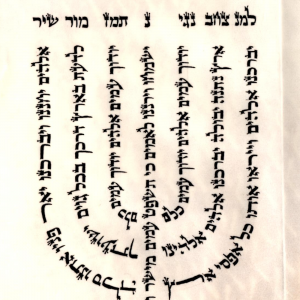 למנ צחב נגי נ תמז מור שיר
אלהים יחננו ויברכנו יאר פניו אתנו סלה
לדעת בארץ דרכך בכל גוים ישועתך
יודוך עמים אלהים יודוך עמים כלם
ישמחו וירננו לאמים כי תשפט עמים מישור
יודוך עמים אלהים יודוך עמים כלם
ארץ נתנה יבולה יברכנו אלהים אלהינו
יברכנו אלהים וייראו אותו כל אפסי אר